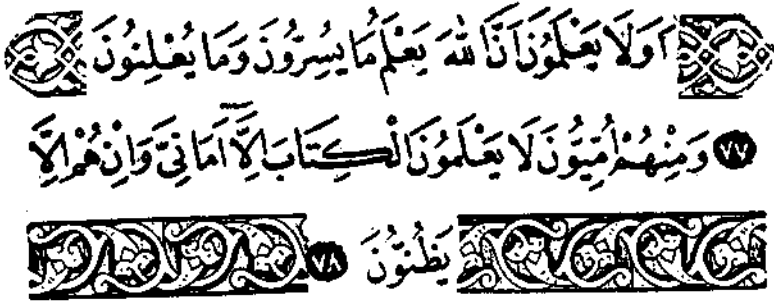 اَوَلَا يَعْلَمُونَ اَنَّ اللّٰهَ يَعْلَمُ مَا يُسِرُّونَ وَمَا يُعْلِنُونَ
٧٧ وَمِنْهُمْ اُمِّيُّونَ لَا يَعْلَمُونَ الْكِتَابَ اِلَّٓا اَمَانِيَّ وَاِنْ هُمْ اِلَّا
يَظُنُّونَ ٧٨